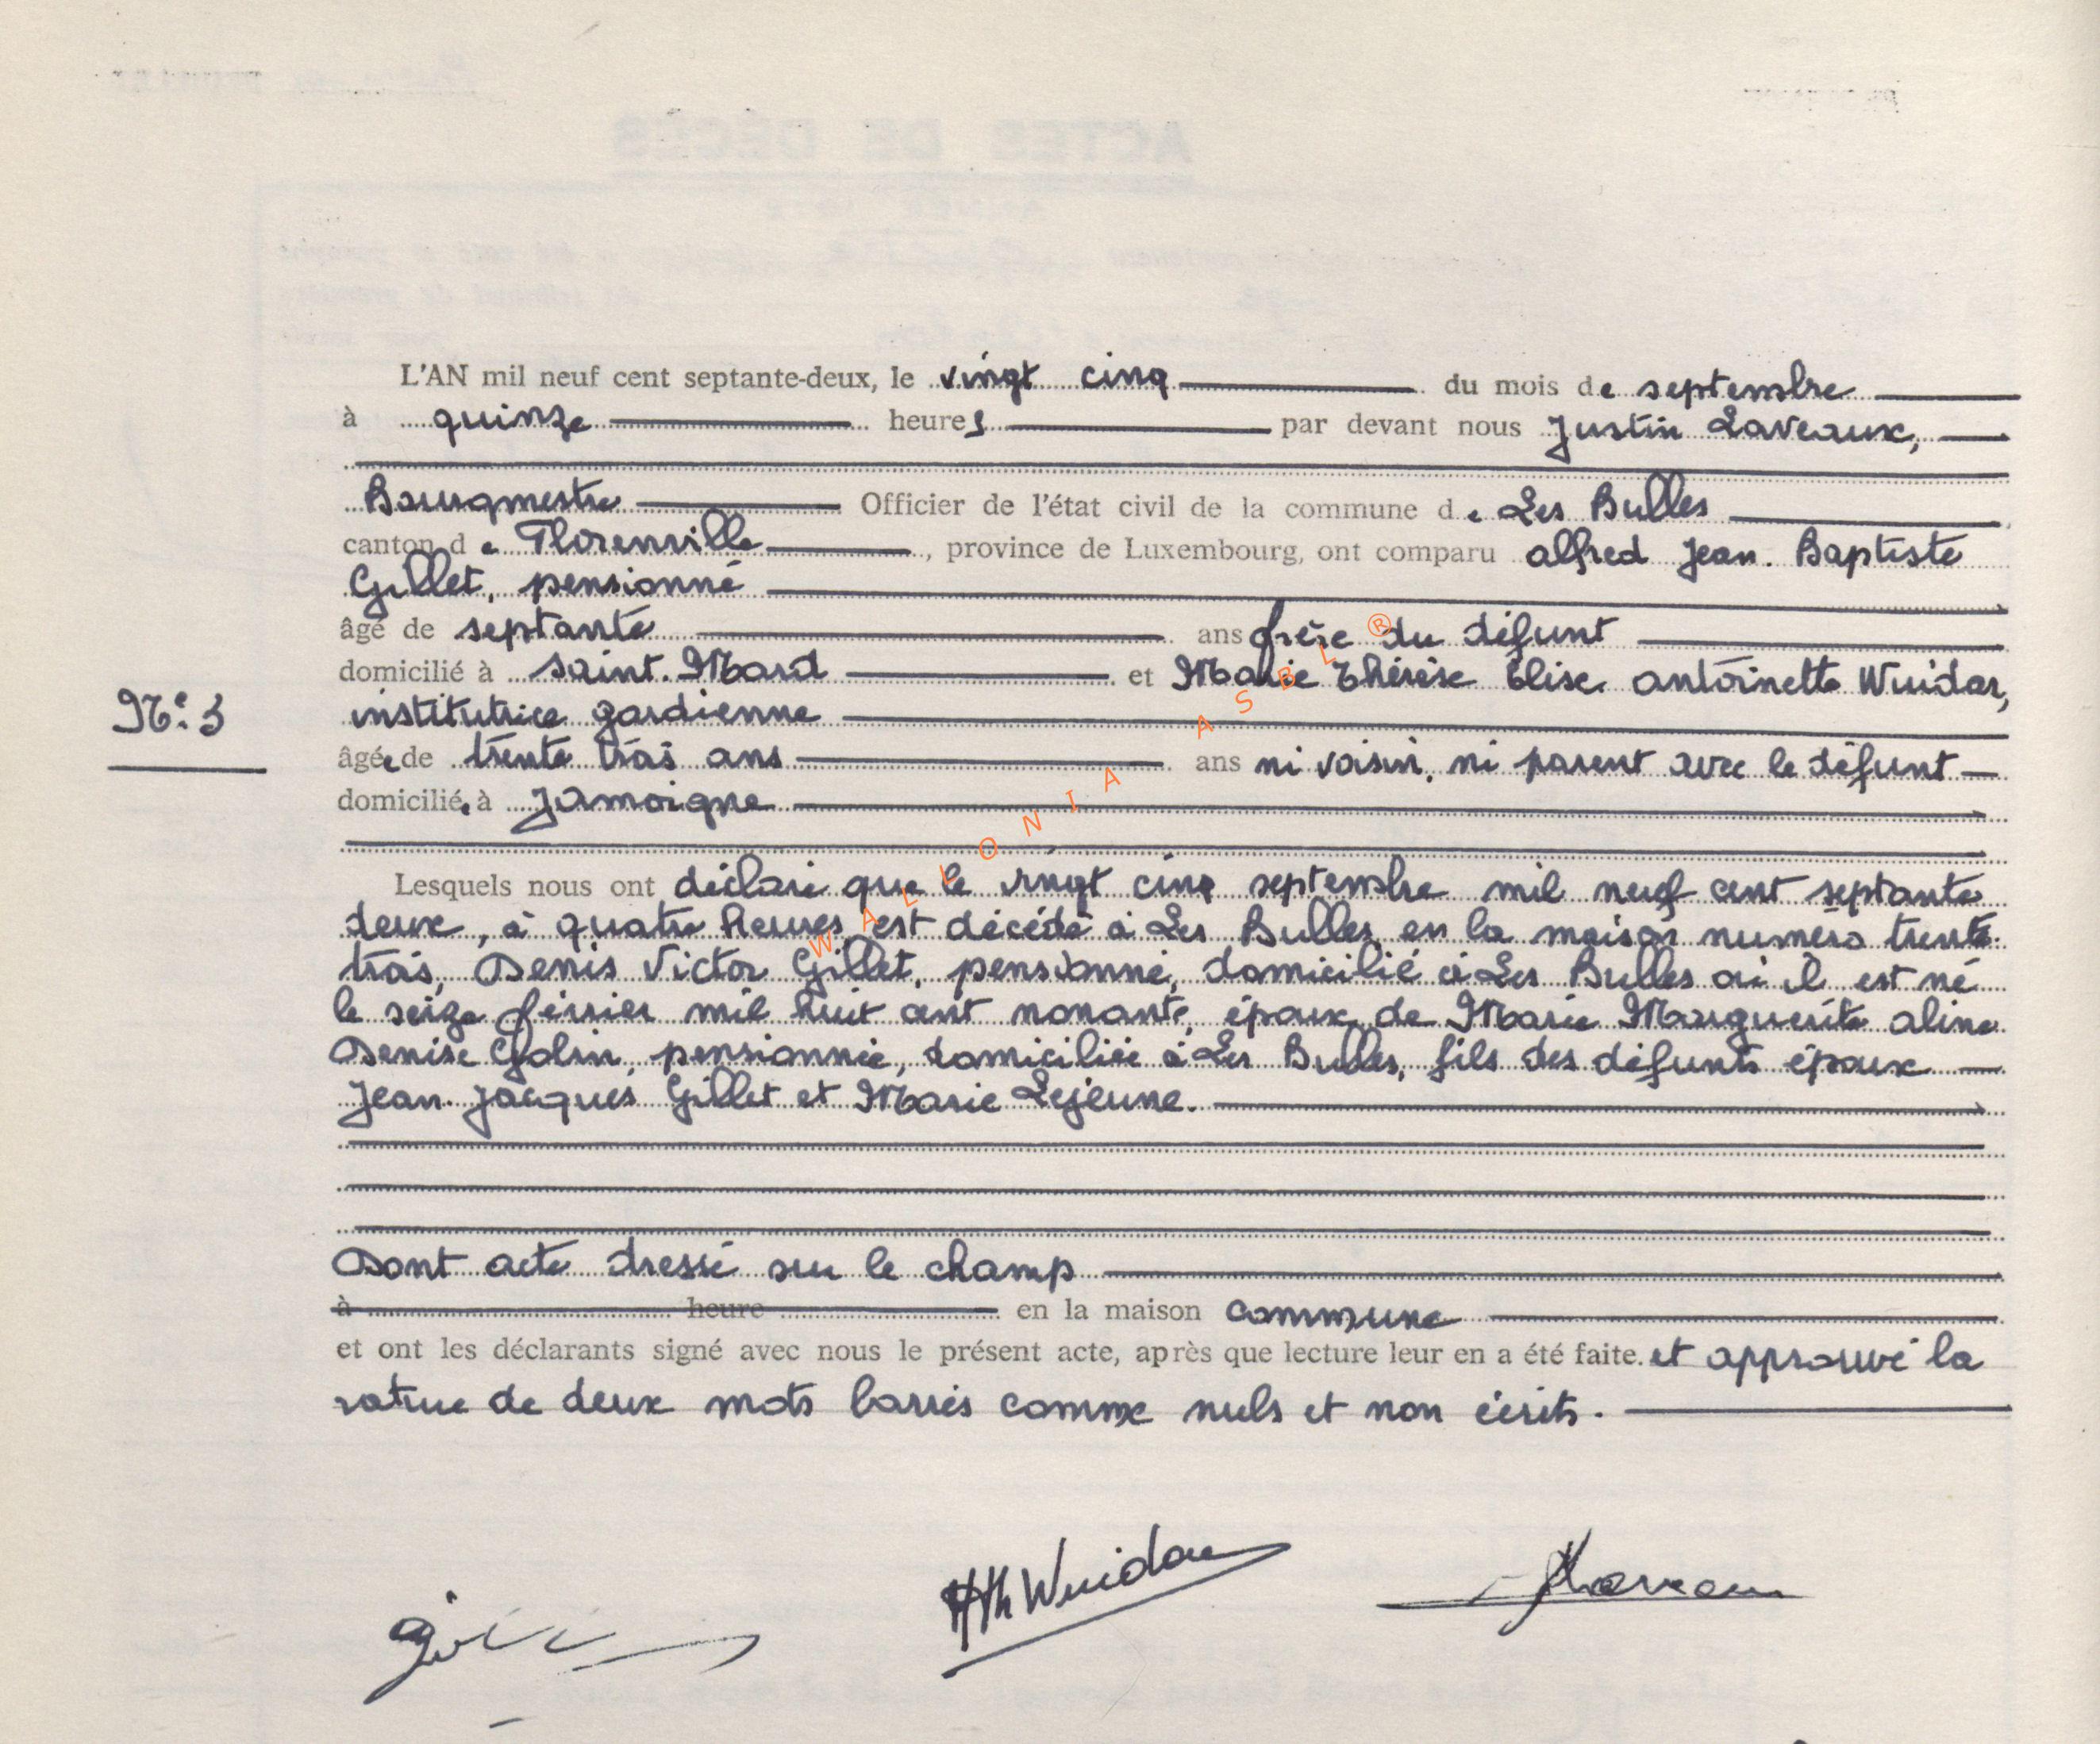 L'AN mil neuf cent septante-deux, le vingt cinq du mois de septembre
à quinze heures par devant nous Justin Laveaux,
Bourgmestre Officier de l'état civil de la commune de Les Bulles
canton de Florenville, province de Luxembourg, ont comparu alfred Jean. Baptiste
Gillet, pensionné
âgé de septante ans frère du défunt
domicilié à Saint. Mard et Marie Thérèse Elise antoinette Wuidar,
N° 3
institutrice gardienne
âgée de trente trois ans ans ni voisin, ni parent avec le défunt
domiciliée à Jamoigne
Lesquels nous ont déclaré que le vingt cinq septembre mil neuf cent septante
deux, à quatre heures est décédé à Les Bulles en la maison numéro trente.
trois, Denis Victor Gillet, pensionné, domicilié à Les Bulles où il est né
le seize février mil huit cent nonante, époux de Marie Marguerite aline
Denise, pensionnée, domiciliée à Les Bulles, fils des défunts époux
Jean. Jacques Gillet et Marie Lejeune.
Dont acte dressé sur le champ
à heure en la maison commune
et ont les déclarants signé avec nous le présent acte, après que lecture leur en a été faite. et approuvé la
rature de deux mots barrés comme nuls et non écrits.
MTh Wuidar
WALLONIA ASBL ®